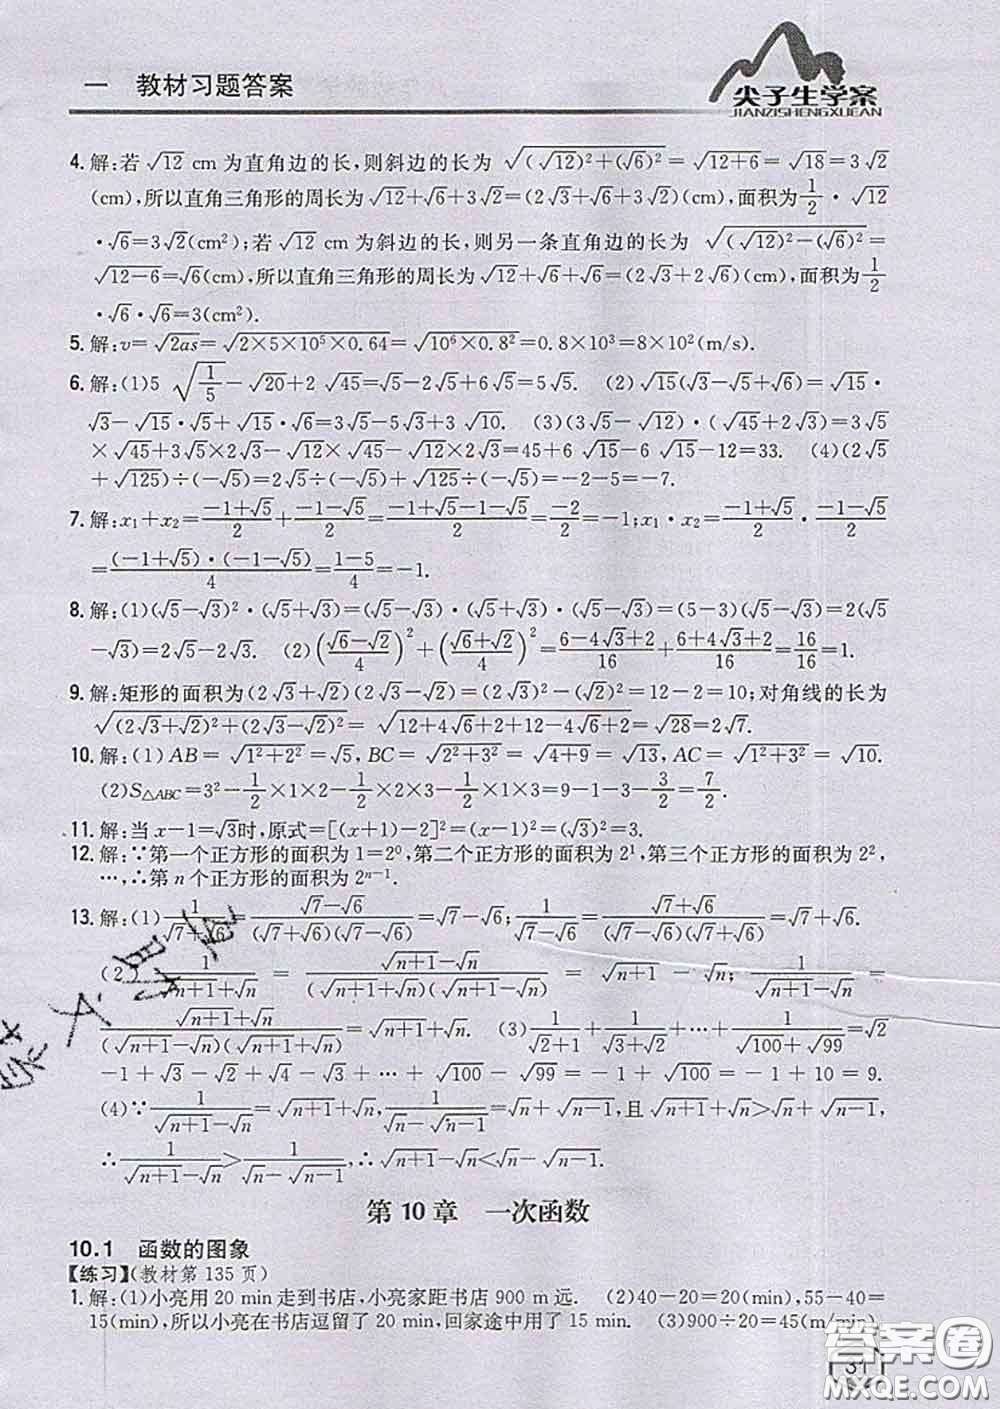 一 教材习题答案
尖子生学案
JIANZISHENGXUEAN
4. 解:若√12 cm 为直角边的长,则斜边的长为 √((√12)²+(√6)²)=√(12+6)=√18=3√2
(cm),所以直角三角形的周长为√12+√6+3√2=(2√3+√6+3√2)(cm),面积为1/2·√12
·√6=3√2(cm²);若√12 cm为斜边的长,则另一条直角边的长为 √((√12)²-(√6)²)=
√(12-6)=√6(cm),所以直角三角形的周长为√12+√6+√6=(2√3+2√6)(cm),面积为1/2
·√6·√6=3(cm²).
5. 解:v=√(2as)=√(2×5×10⁵×0.64)=√(10⁶×0.8²)=0.8×10³=8×10²(m/s).
6. 解:(1)5√(1/5)-√20+2√45=√5-2√5+6√5=5√5. (2)√15(√3-√5+√6)=√15·
√3-√15·√5+√15·√6=3√5-5√3+3√10. (3)(3√5-√12)·(√45+2√3)=3√5
×√45+3√5×2√3-√12×√45-√12×2√3=45+6√15-6√15-12=33. (4)(2√5
+√125)÷(-√5)=2√5÷(-√5)+√125÷(-√5)=-2-5=-7.
7. 解:x₁+x₂=(-1+√5)/2+(-1-√5)/2=(-1+√5-1-√5)/2=-2/2=-1;x₁·x₂=(-1+√5)/2·(-1-√5)/2
=((-1+√5)·(-1-√5))/4=(1-5)/4=-1.
8. 解:(1)(√5-√3)²·(√5+√3)=(√5-√3)·(√5+√3)·(√5-√3)=(5-3)(√5-√3)=2(√5
-√3)=2√5-2√3. (2)((√6-√2)/4)²+((√6+√2)/4)²=(6-4√3+2)/16+(6+4√3+2)/16=16/16=1.
9. 解:矩形的面积为(2√3+√2)(2√3-√2)=(2√3)²-(√2)²=12-2=10;对角线的长为
√((2√3+√2)²+(2√3-√2)²)=√(12+4√6+2+12-4√6+2)=√28=2√7.
10. 解:(1)AB=√(1²+2²)=√5,BC=√(2²+3²)=√(4+9)=√13,AC=√(1²+3²)=√10.
(2)S△ABC=3²-1/2×1×2-1/2×2×3-1/2×1×3=9-1-3-3/2=7/2.
11. 解:当x-1=√3时,原式=[(x+1)-2]²=(x-1)²=(√3)²=3.
12. 解:∵第一个正方形的面积为1=2⁰,第二个正方形的面积为2¹,第三个正方形的面积为2²,
…,∴第n个正方形的面积为2ⁿ⁻¹.
13. 解:(1)1/(√7+√6)=(√7-√6)/((√7+√6)(√7-√6))=√7-√6;1/(√7-√6)=(√7+√6)/((√7-√6)(√7+√6))=√7+√6.
(2)1/(√(n+1)+√n)=(√(n+1)-√n)/((√(n+1)+√n)(√(n+1)-√n))=√(n+1)-√n;1/(√(n+1)-√n)=
(√(n+1)+√n)/((√(n+1)-√n)(√(n+1)+√n))=√(n+1)+√n. (3)1/(√2+1)+1/(√3+√2)+…+1/(√100+√99)=√2
-1+√3-√2+√4-√3+…+√100-√99=-1+√100=-1+10=9.
(4)∵1/(√(n+1)-√n)=√(n+1)+√n,1/(√n-√(n-1))=√n+√(n-1),且√(n+1)+√n>√n+√(n-1),
∴1/(√(n+1)-√n)>1/(√n-√(n-1)),∴√(n+1)-√n<√n-√(n-1).
第10章 一次函数
10.1 函数的图象
【练习】(教材第135页)
1. 解:(1)小亮用20 min走到书店,小亮家距书店900 m远. (2)40-20=20(min),55-40=
15(min),所以小亮在书店逗留了20 min,回家途中用了15 min. (3)900÷20=45(m/min),
31
答案圈
MXQE.COM